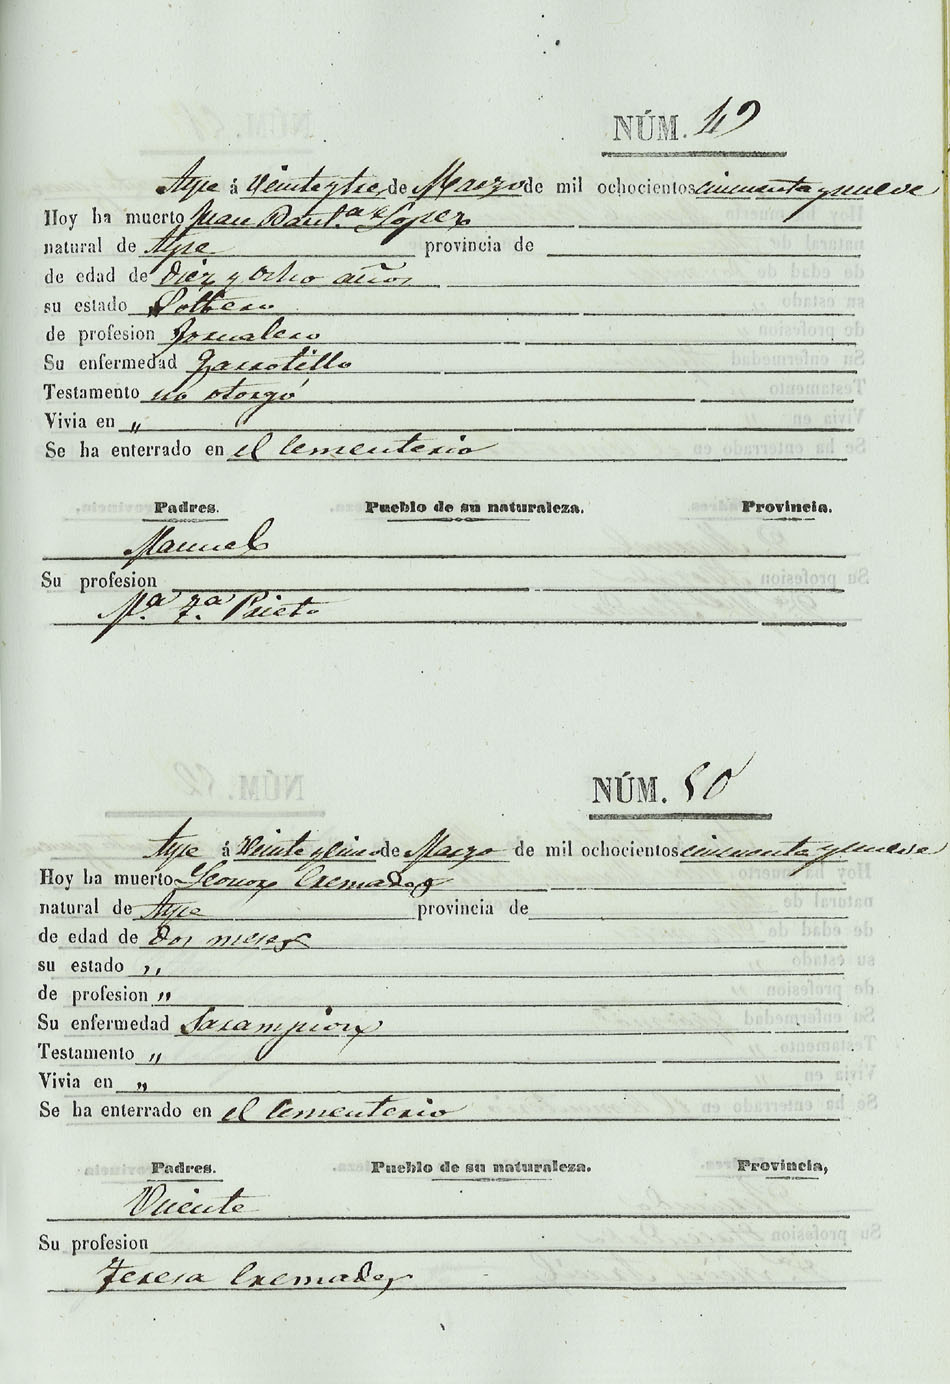 NÚM. 49
Aspe á Veinte y tres de Marzo de mil ochocientos cincuenta y nueve
Hoy ha muerto Juan Baut.ª Lopez
natural de Aspe provincia de
de edad de Diez y ocho años
su estado Soltero
de profesion Jornalero
Su enfermedad Garrotillo
Testamento no otorgó
Vivia en „
Se ha enterrado en el Cementerio
Padres. Pueblo de su naturaleza. Provincia.
Manuel
Su profesion
M.ª T.ª Prieto
NÚM. 50
Aspe á Veinte y cinco de Marzo de mil ochocientos cincuenta y nueve
Hoy ha muerto Leonor Cremades
natural de Aspe provincia de
de edad de dos meses
su estado „
de profesion „
Su enfermedad Sarampion
Testamento „
Vivia en „
Se ha enterrado en el Cementerio
Padres. Pueblo de su naturaleza. Provincia,
Vicente
Su profesion
Teresa Cremades